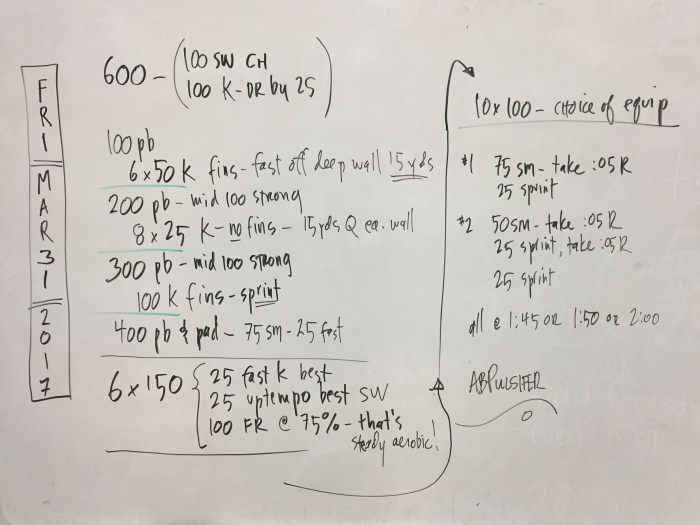 FRI MAR 31 2017
600 - (100 SW CH
100 K-DR by 25)
100 pb
6x50 K fins - fast off deep wall 15 yds
200 pb - mid 100 strong
8x25 K - no fins - 15 yds Q ea. wall
300 pb - mid 100 strong
100 K fins - sprint
400 pb & pad - 75 sm - 25 fast
6x150 { 25 fast k best
25 uptempo best SW
100 FR @ 75% - that's
steady aerobic!
10x100 - choice of equip
#1 75 sm - take :05 R
25 sprint
#2 50 sm - take :05 R
25 sprint, take :05 R
25 sprint
all @ 1:45 or 1:50 or 2:00
ABPULSIFER